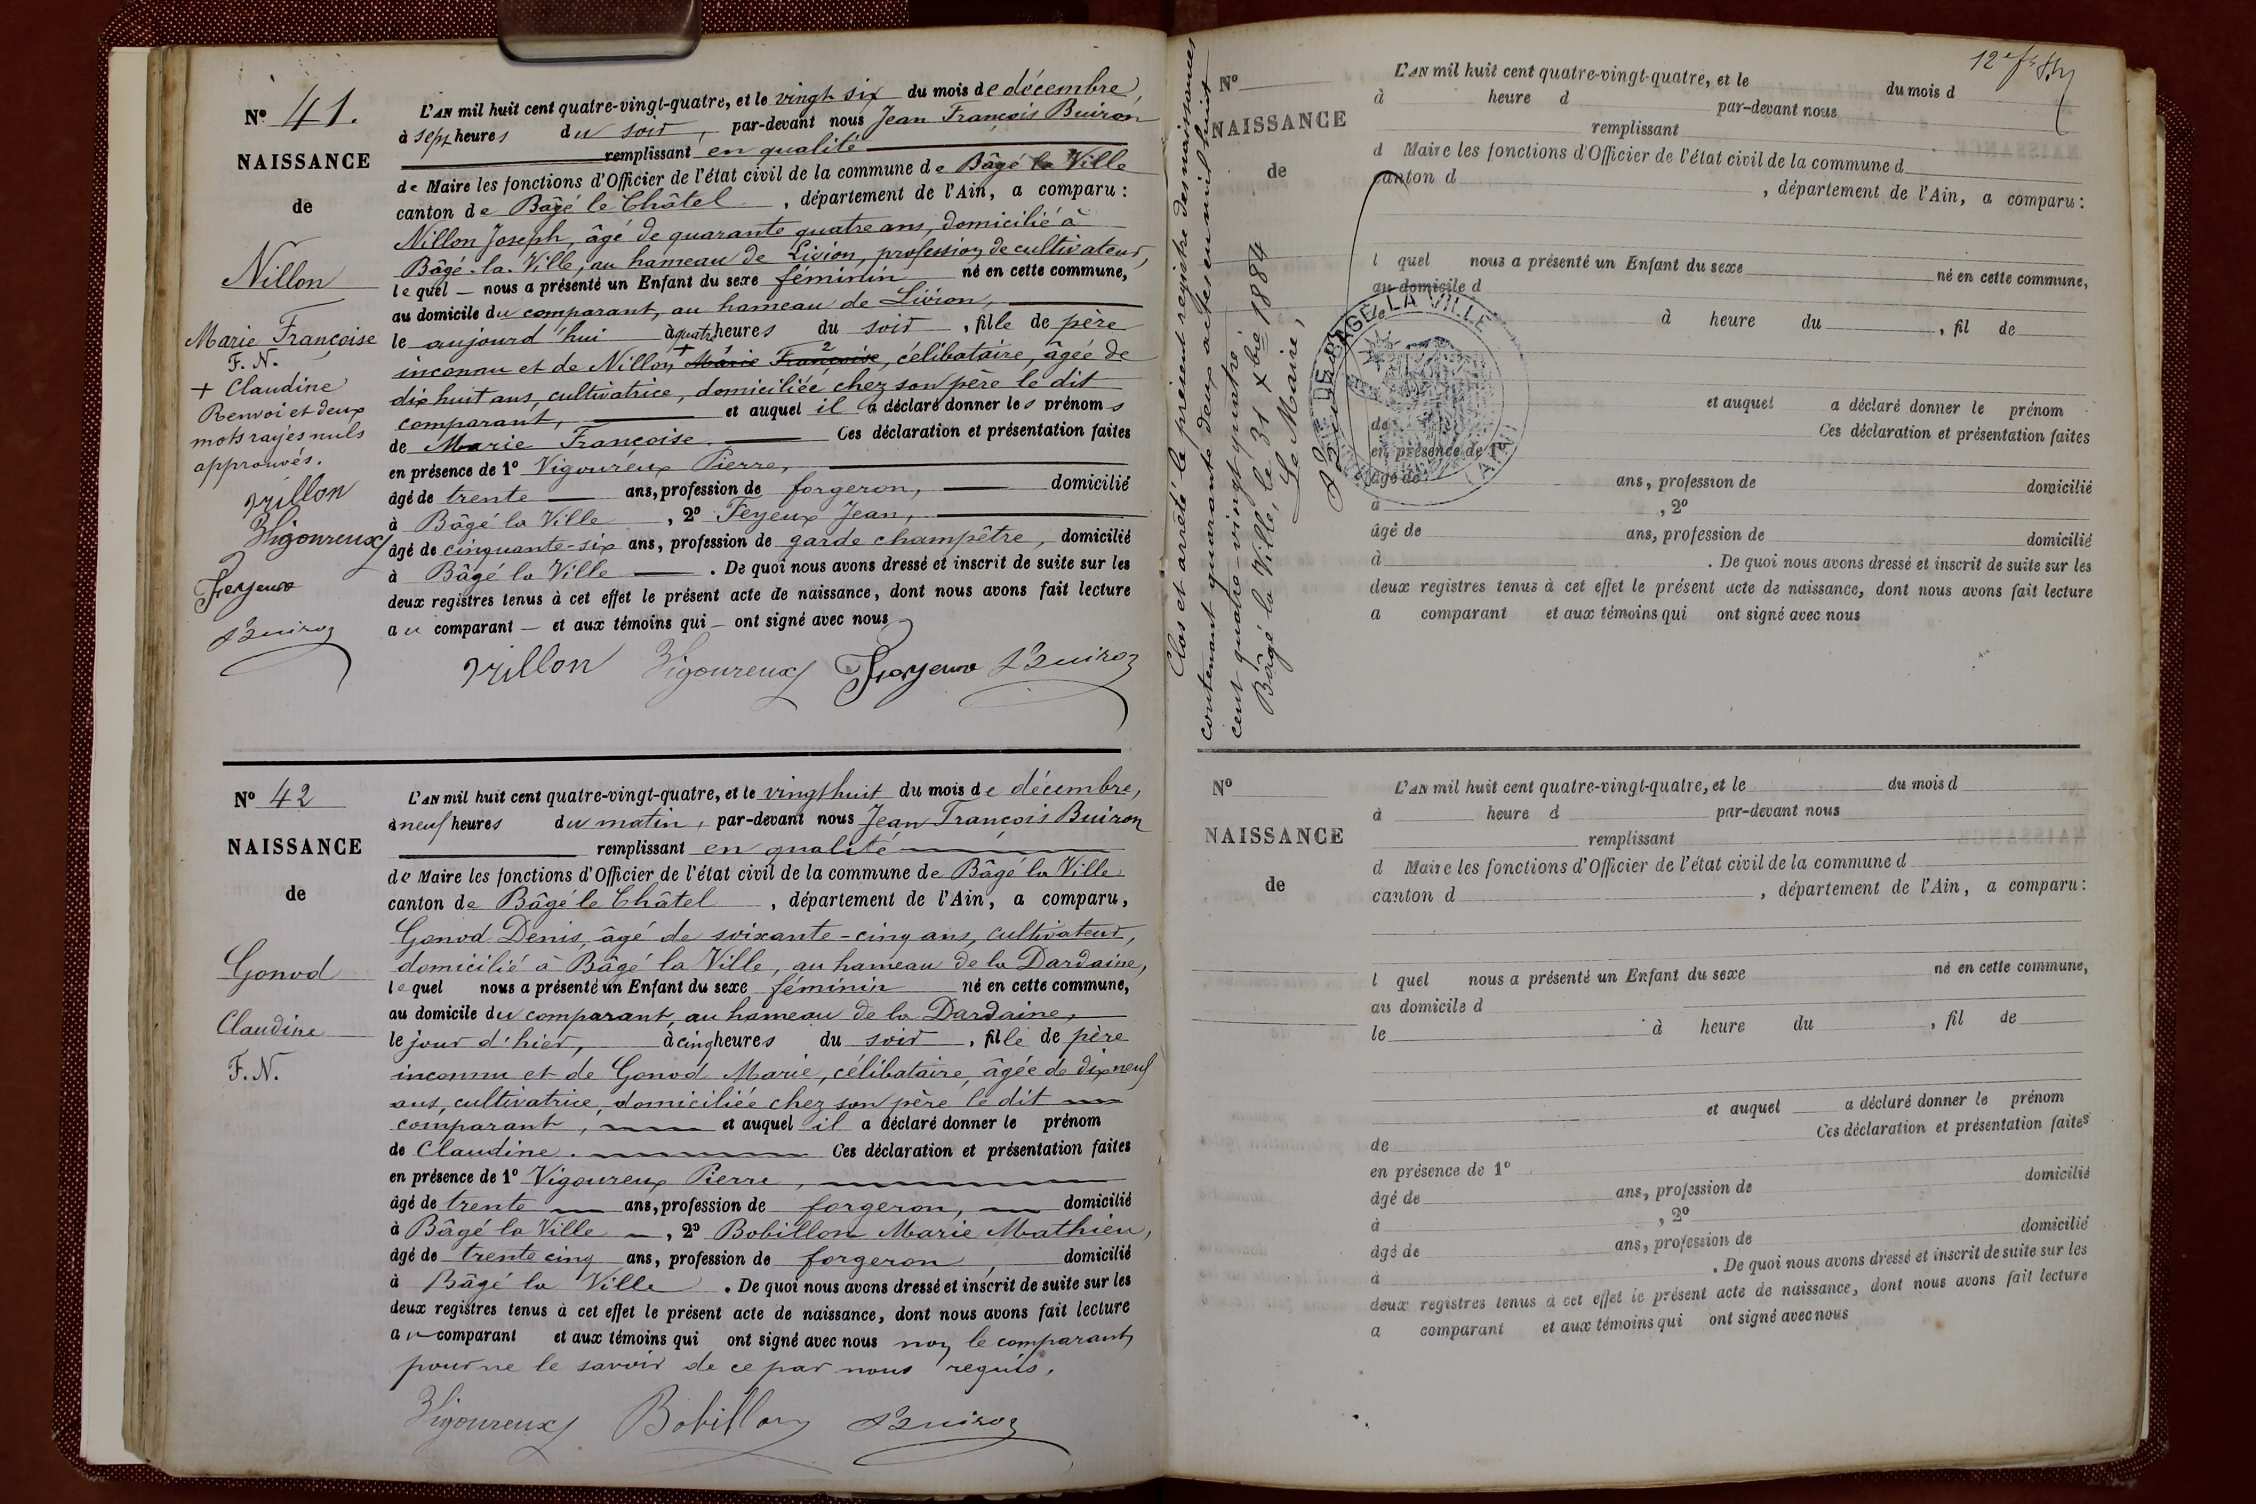 Nº 41.
NAISSANCE
de
Nillon
Marie Françoise
F. N.
+ Claudine
Renvoi et deux
mots rayés nuls
approuvés.
Nillon
Vigoureux
Feyeux
Buiron
L'AN mil huit cent quatre-vingt-quatre, et le vingt six du mois de décembre,
à sept heures du soir, par-devant nous Jean François Buiron
remplissant en qualité
de Maire les fonctions d'Officier de l'état civil de la commune de Bâgé la Ville
canton de Bâgé le Châtel, département de l'Ain, a comparu :
Nillon Joseph, âgé de quarante quatre ans, domicilié à
Bâgé-la-Ville, au hameau de Livion, profession de cultivateur,
le quel — nous a présenté un Enfant du sexe féminin né en cette commune,
au domicile du comparant, au hameau de Livion,
le aujourd'hui à quatre heures du soir, fille de père
inconnu et de Nillon + Marie Françoise, célibataire, âgée de
dix huit ans, cultivatrice, domiciliée chez son père le dit
comparant, et auquel il a déclaré donner les prénoms
de Marie Françoise. Ces déclaration et présentation faites
en présence de 1º Vigoureux Pierre,
âgé de trente ans, profession de forgeron, domicilié
à Bâgé la Ville, 2º Feyeux Jean,
âgé de cinquante-six ans, profession de garde champêtre, domicilié
à Bâgé la Ville. De quoi nous avons dressé et inscrit de suite sur les
deux registres tenus à cet effet le présent acte de naissance, dont nous avons fait lecture
au comparant — et aux témoins qui — ont signé avec nous
Nillon Vigoureux Feyeux Buiron
Nº 42
NAISSANCE
de
Gonod
Claudine
F. N.
L'AN mil huit cent quatre-vingt-quatre, et le vingt huit du mois de décembre,
à neuf heures du matin, par-devant nous Jean François Buiron
remplissant en qualité
de Maire les fonctions d'Officier de l'état civil de la commune de Bâgé la Ville
canton de Bâgé le Châtel, département de l'Ain, a comparu,
Gonod Denis, âgé de soixante-cinq ans, cultivateur,
domicilié à Bâgé la Ville, au hameau de la Dardaine,
le quel nous a présenté un Enfant du sexe féminin né en cette commune,
au domicile du comparant, au hameau de la Dardaine,
le jour d'hier, à cinq heures du soir, fille de père
inconnu et de Gonod Marie, célibataire, âgée de dix neuf
ans, cultivatrice, domiciliée chez son père le dit
comparant, et auquel il a déclaré donner le prénom
de Claudine. Ces déclaration et présentation faites
en présence de 1º Vigoureux Pierre,
âgé de trente ans, profession de forgeron, domicilié
à Bâgé la Ville, 2º Bobillon Marie Mathieu,
âgé de trente cinq ans, profession de forgeron domicilié
à Bâgé la Ville. De quoi nous avons dressé et inscrit de suite sur les
deux registres tenus à cet effet le présent acte de naissance, dont nous avons fait lecture
au comparant et aux témoins qui ont signé avec nous non le comparant
pour ne le savoir de ce par nous requis.
Vigoureux Bobillon Buiron
Clos et arrêté le présent registre des naissances
contenant quarante deux actes en mil huit
cent quatre-vingt quatre
Bâgé la Ville, le 31 Xbre 1884
Le Maire,
Buiron
MAIRIE DE BAGÉ LA VILLE
(AIN)
Nº
NAISSANCE
de
L'AN mil huit cent quatre-vingt-quatre, et le du mois d
à heure d par-devant nous
remplissant
d Maire les fonctions d'Officier de l'état civil de la commune d
canton d , département de l'Ain, a comparu :
l quel nous a présenté un Enfant du sexe né en cette commune,
au domicile d
le à heure du , fil de
et auquel a déclaré donner le prénom
de Ces déclaration et présentation faites
en présence de 1º
âgé de ans, profession de domicilié
à , 2º
âgé de ans, profession de domicilié
à . De quoi nous avons dressé et inscrit de suite sur les
deux registres tenus à cet effet le présent acte de naissance, dont nous avons fait lecture
a comparant et aux témoins qui ont signé avec nous
Nº
NAISSANCE
de
L'AN mil huit cent quatre-vingt-quatre, et le du mois d
à heure d par-devant nous
remplissant
d Maire les fonctions d'Officier de l'état civil de la commune d
canton d , département de l'Ain, a comparu :
l quel nous a présenté un Enfant du sexe né en cette commune,
au domicile d
le à heure du , fil de
et auquel a déclaré donner le prénom
de Ces déclaration et présentation faites
en présence de 1º
âgé de ans, profession de domicilié
à , 2º
âgé de ans, profession de domicilié
à . De quoi nous avons dressé et inscrit de suite sur les
deux registres tenus à cet effet le présent acte de naissance, dont nous avons fait lecture
a comparant et aux témoins qui ont signé avec nous